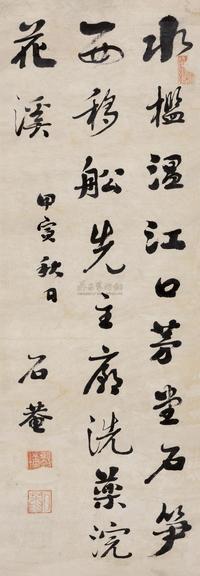 水檻温江口茅堂石笋
西移舩先主廟洗藥浣
花溪
甲寅秋日
石菴